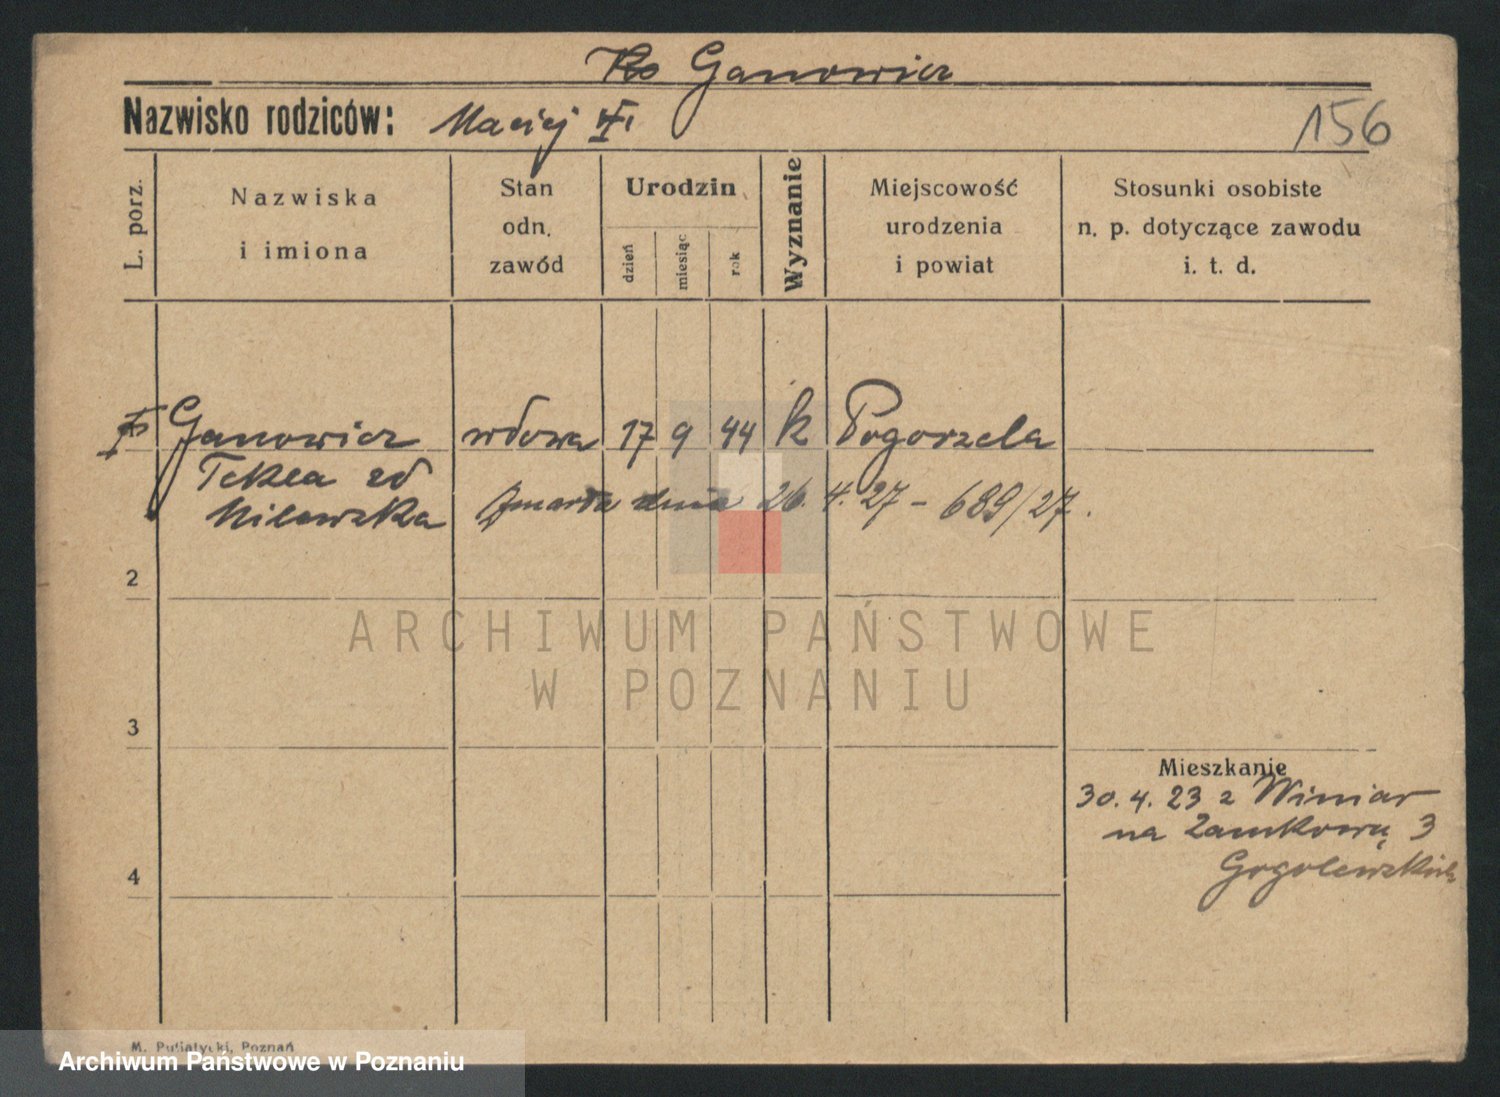 Ganowicz
Nazwisko rodziców: Maciej
156
L. porz.
Nazwiska
i imiona
Stan
odn.
zawód
Urodzin
dzień
miesiąc
rok
Wyznanie
Miejscowość
urodzenia
i powiat
Stosunki osobiste
n. p. dotyczące zawodu
i. t. d.
Ganowicz wdowa 17 9 44 k Pogorzela
Tekla zd
Milewska zmarła dnia 26. 4. 27 - 689/27.
2
ARCHIWUM PAŃSTWOWE
W POZNANIU
3
Mieszkanie
30. 4. 23 z Winiar
na Zamkową 3
4
M. Putiatycki, Poznań
Archiwum Państwowe w Poznaniu